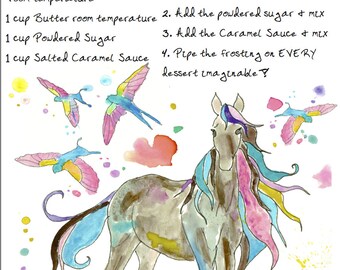 room temperature
1 cup Butter room temperature
1 cup Powdered Sugar
1 cup Salted Caramel Sauce
2. Add the powdered sugar & mix
3. Add the Caramel Sauce & mix
4. Pipe the frosting on EVERY
dessert imaginable